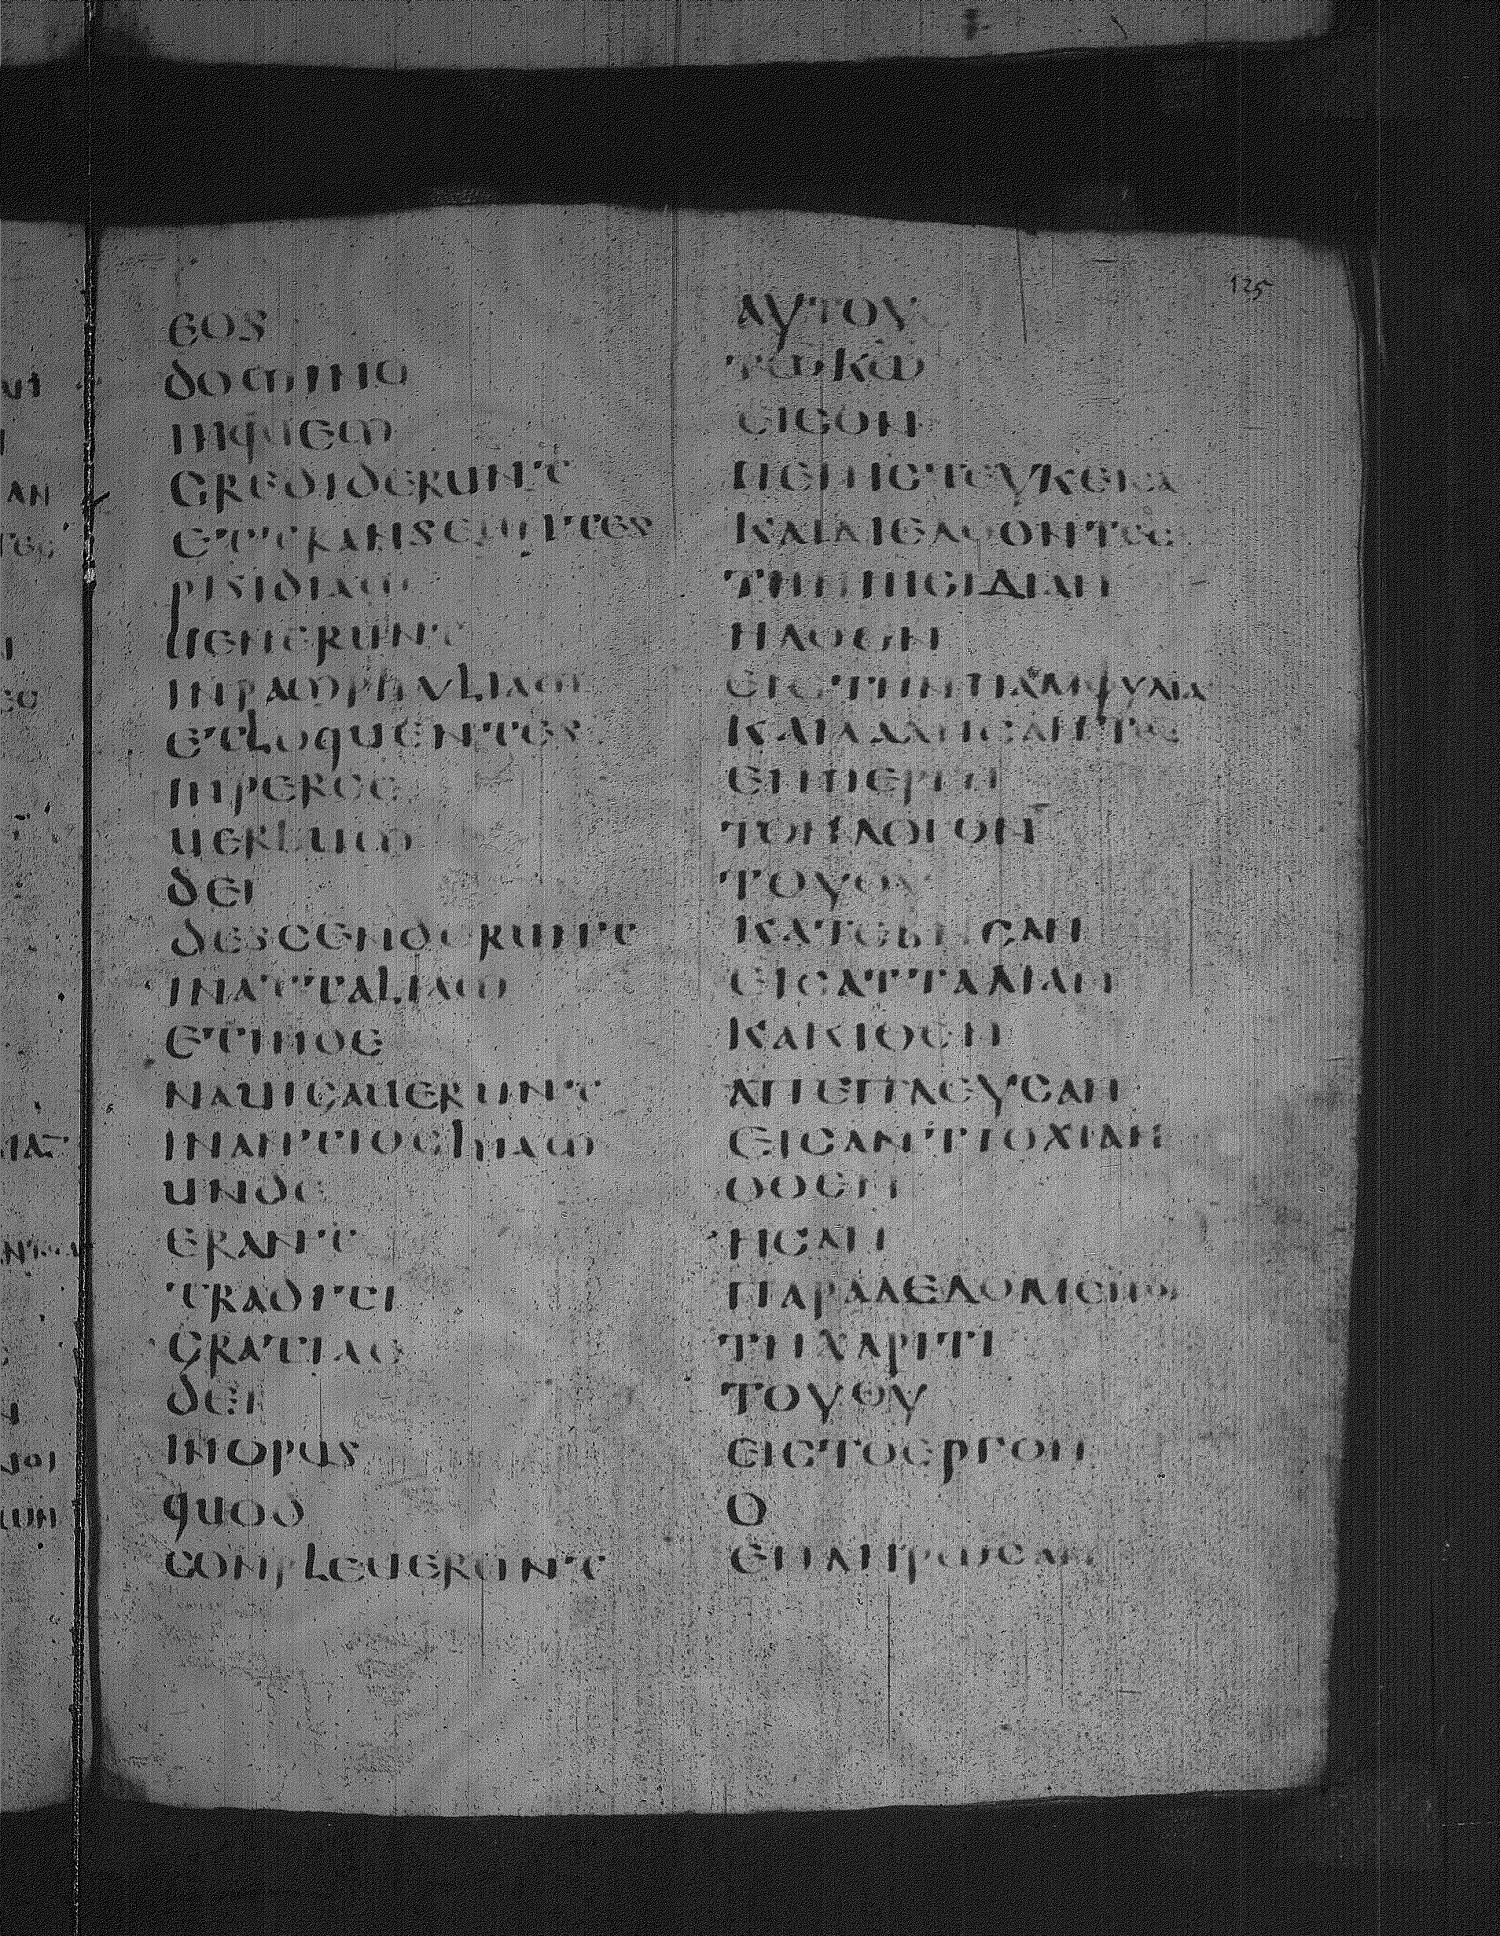 125
eos
domino
inquem
crediderunt
ettranseuntes
pisidiam
uenerunt
inpamphyliam
etloquentes
inperge
uerbum
dei
descenderunt
inattaliam
etinde
nauigauerunt
inantiochiam
unde
erant
traditi
gratiae
dei
inopus
quod
conpleuerunt
ΑΥΤΟΥ
ΤΩΚΩ
ΕΙCΟΝ
ΠΕΠΙCΤΕΥΚΕΙCΑ
ΚΑΙΔΙΕΛΘΟΝΤΕC
ΤΗΝΠΙCΙΔΙΑΝ
ΗΛΘΟΝ
ΕΙCΤΗΝΠΑΜΦΥΛΙΑ
ΚΑΙΛΑΛΗCΑΝΤΕC
ΕΝΠΕΡΓΗ
ΤΟΝΛΟΓΟΝ
ΤΟΥΘΥ
ΚΑΤΕΒΗCΑΝ
ΕΙCΑΤΤΑΛΙΑΝ
ΚΑΚΙΘΕΝ
ΑΠΕΠΛΕΥCΑΝ
ΕΙCΑΝΤΙΟΧΙΑΝ
ΟΘΕΝ
ΗCΑΝ
ΠΑΡΑΔΕΔΟΜΕΝΟΙ
ΤΗΧΑΡΙΤΙ
ΤΟΥΘΥ
ΕΙCΤΟΕΡΓΟΝ
Ο
ΕΠΛΗΡΩCΑΝ